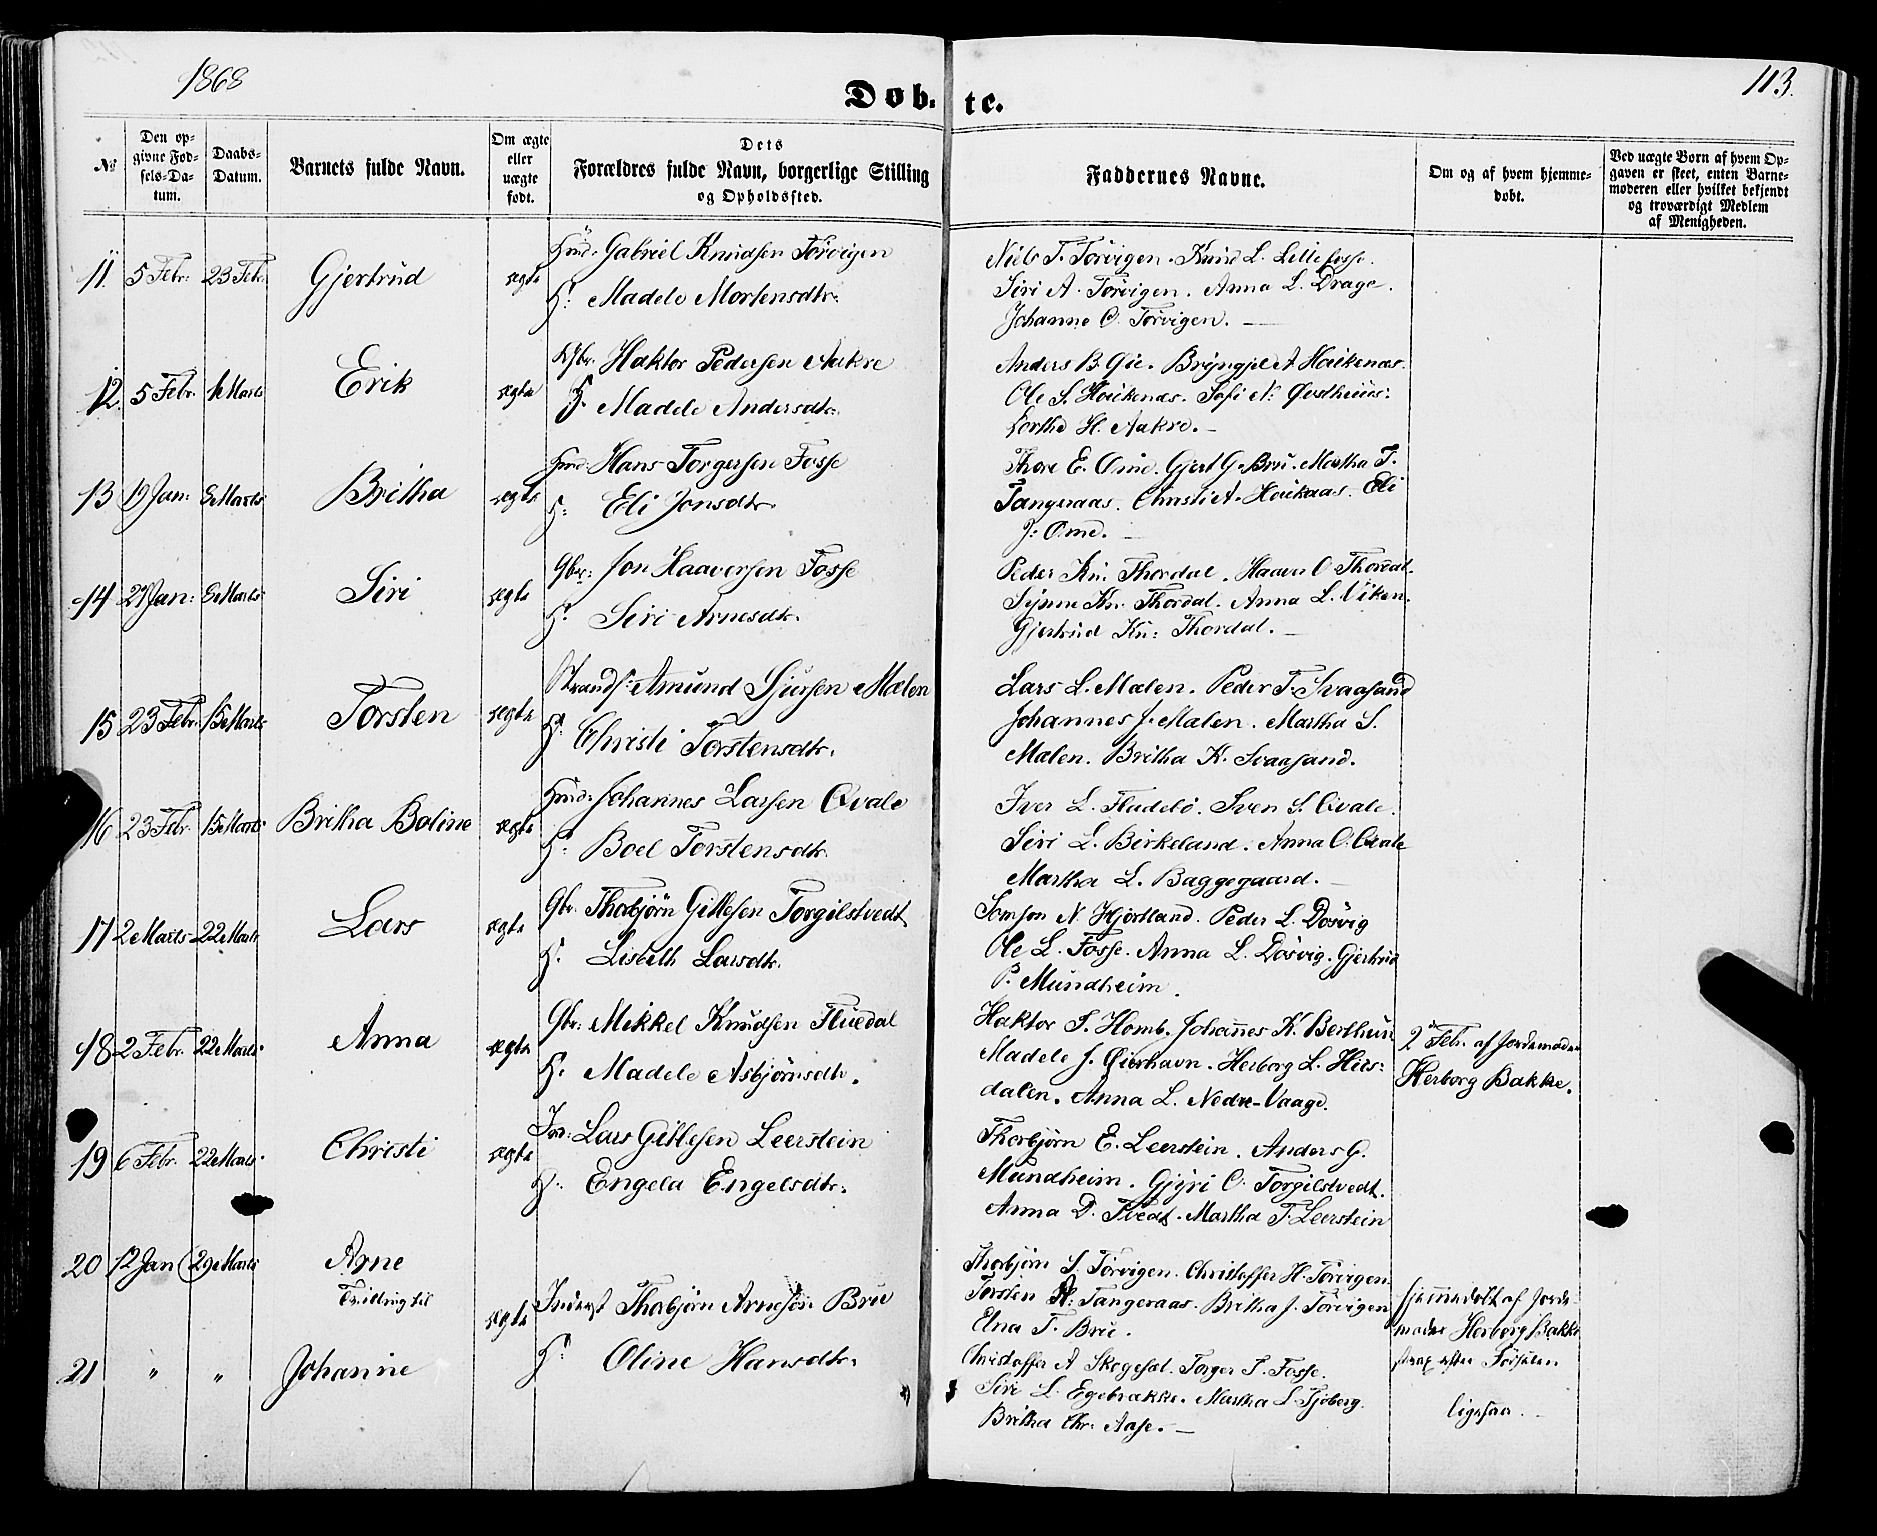 1868
113.
Døb. te.
№
Den op-
givne Fød-
sels-Da-
tum.
Daabs-
Datum.
Barnets fulde Navn.
Om ægte
eller
uægte
født.
Dets
Forældres fulde Navn, borgerlige Stilling
og Opholdssted.
Faddernes Navne.
Om og af hvem hjemme-
døbt.
Ved uægte Børn af hvem Op-
gaven er skeet, enten Barne-
moderen eller hvilket bekjendt
og troværdigt Medlem
af Menigheden.
11. 5 Febr: 23 Feb. Gjertrud ægte Huusd: Gabriel Knudsen Torvigen
H: Madele Mortensdtr:
Niels T. Torvigen. Knud L. Lillefosse.
Siri A. Torvigen. Anna L. Drage.
Johanne O. Torvigen. —
12. 5 Febr. 1 Marts Erik ægte Gbr. Haktor Pedersen Aakre
H. Madele Andersdtr:
Anders B. Gie. Brÿngjel A Haukenæs.
Ole S. Haukenæs. Sofi N: Qvstheiis.
Dorthe H. Aakre. —
13 19 Jan: 8 Marts Britha ægte Huusd: Hans Torgersen Fosse
H: Eli Jonsdtr.
Thore E. Ome. Gjert G. Bru. Martha T.
Tangeraas. Christi A. Haukaas. Eli
J: Ome. —
14 27 Jan: 8 Marts Siri ægte Gbr: Jon Haaversen Fosse
H. Siri Arnesdtr.
Peder Kn: Thordal. Haaver O Thordal.
Synne Kn. Thordal. Anna L. Viken.
Gjertrud Kn: Thordal. —
15 23 Febr. 15 Marts Torsten ægte Strands: Amund Sjursen Mælen
H. Christi Torstensdtr.
Lars L. Mælen. Peder T. Svaasand
Johannes J. Mælen. Martha S.
Mælen. Britha K. Svaasand.
16 23 Febr. 15 Marts Britha Boline ægte Huusd: Johannes Larsen Qvale
H. Boel Torstensdtr.
Iver L. Fladebø. Sven S. Qvale.
Siri L. Birkeland. Anna O. Qvale
Martha L. Baggegaard. —
17 2 Marts 22 Marts Lars ægte Gbr. Thorbjørn Gitlesen Torgilstvedt
H. Lisbeth Larsdtr.
Samson N. Hjortland. Peder L. Døsvig
Ole L. Fosse. Anna L. Døsvig. Gjertrud
P. Mundheim.
18 2 Febr. 22 Marts. Anna ægte Gbr: Mikkel Knudsen Fluedal
H. Madele Asbjørnsdtr.
Haktor T. Homb. Johannes K. Berthun
Madele J. Qierhavn. Herborg L. Hiis:
dalen. Anna L. Nedre-Vaage.
2 Febr. af Jordemoder
Herborg Bakke.
19 6 Febr. 22 Marts. Christi ægte Ind: Lars Gitlesen Leerstein
H. Engela Engelsdtr.
Thorbjørn E. Leerstein. Anders G.
Mundheim. Gjÿri O. Torgilstvedt.
Anna D. Tvedt. Martha T. Leerstein
20 12 Jan 29 Marts Arne
Tvilling til
ægte Inderst Thorbjørn Arnesøn Bru
H. Oline Hansdtr.
Thorbjørn S. Torvigen. Christoffer H. Torvigen
Torsten A. Tangeraas. Britha J. Torvigen
Elna T. Bru.
Hjemmedøbt af Jorde-
moder Herborg Bakke
strax efter Fødselen
21 " " Johanne
Christoffer A Skogesæl. Torger T. Fosse.
Siri L. Egebrække. Martha L. Tjoberg.
Britha Chr. Aase. —
ligesaa. —